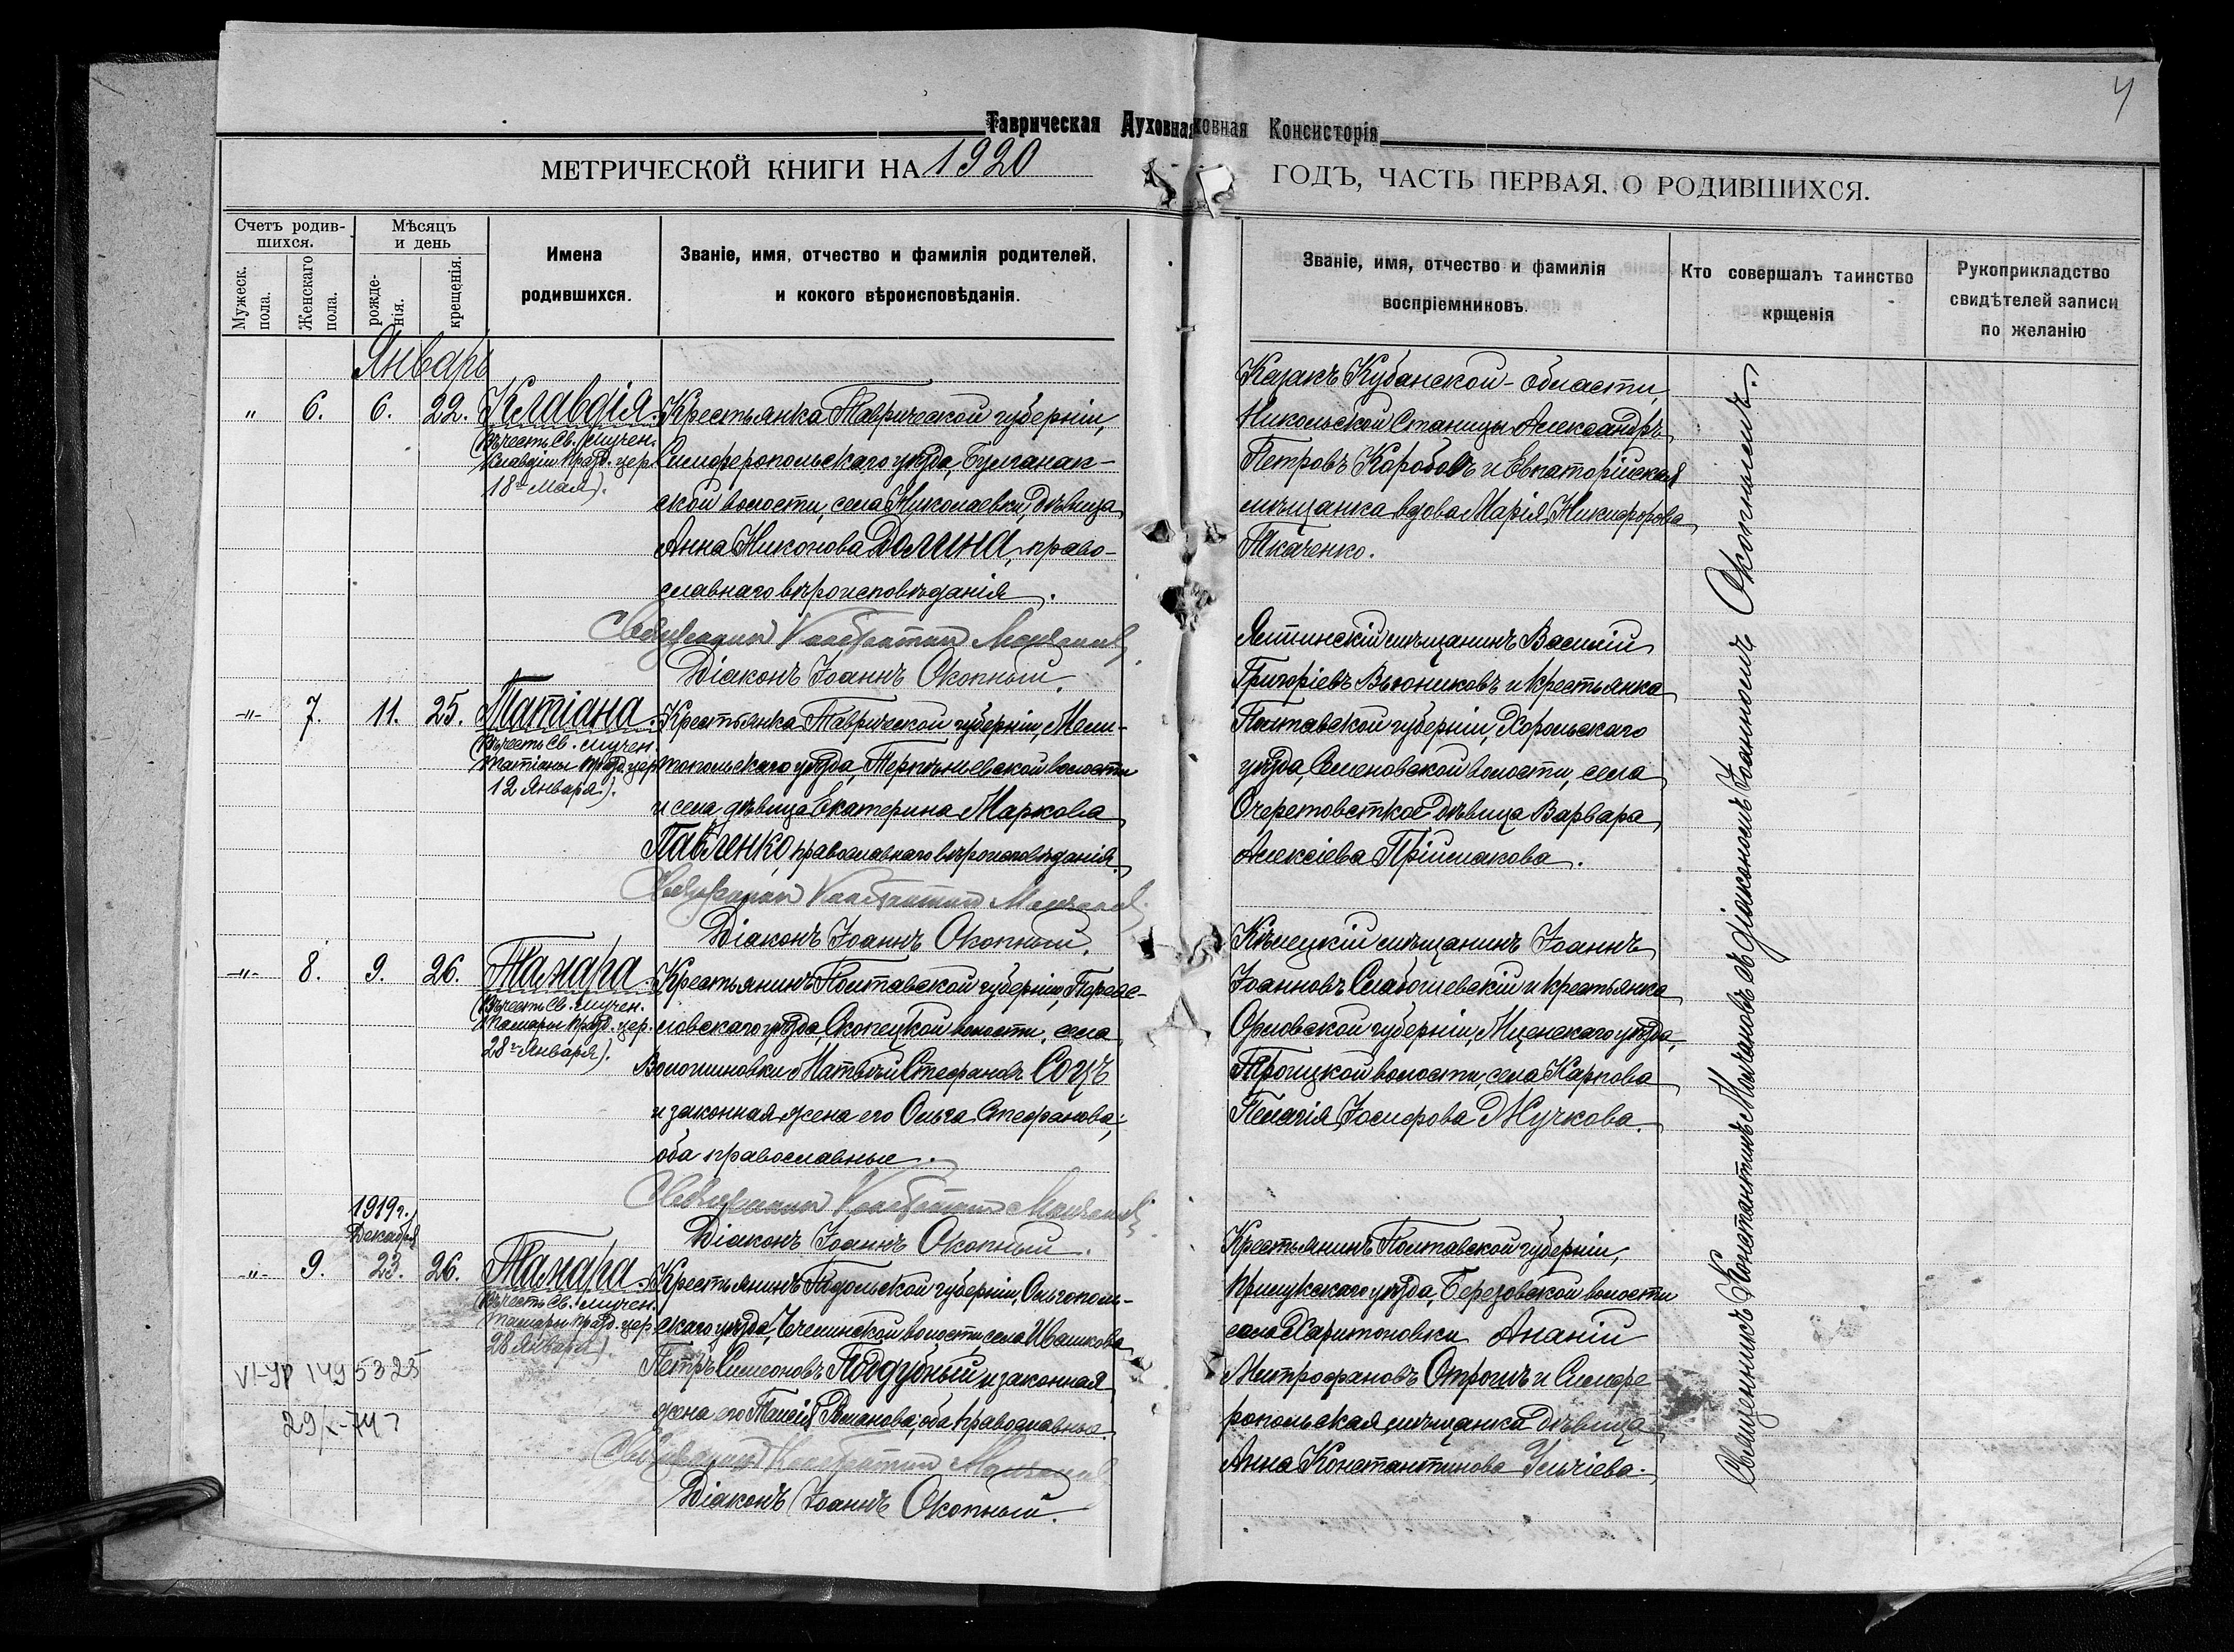 4
Таврическая Духовная
ховная Консисторія
МЕТРИЧЕСКОЙ КНИГИ НА 1920
ГОДЪ, ЧАСТЬ ПЕРВАЯ, О РОДИВШИХСЯ.
Счетъ родив-
шихся.
Мужеск.
пола.
Женскаго
пола.
Мѣсяцъ
и день
рожде-
нія.
крещенія.
Имена
родившихся.
Званіе, имя, отчество и фамилія родителей,
и кокого вѣроисповѣданія.
Званіе, имя, отчество и фамилія
воспріемниковъ.
Кто совершалъ таинство
крщенія
Рукоприкладство
свидѣтелей записи
по желанію
Январь
" 6. 6. 22. Клавдія.
(Въ честь Св. мучен.
Клавдіи празд. цер.
18го Мая).
Крестьянка Таврической губерніи,
Симферопольскаго уѣзда, Булганак-
ской волости, села Николаевки, дѣвица
Анна Никонова Долина, право-
славнаго вѣроисповѣданія.
Священникъ Константинъ Молчановъ
Діаконъ Іоаннъ Окопный.
Казакъ Кубанской-области,
Никольской Станицы Александръ
Петровъ Коробовъ и Евпаторійская
мѣщанка вдова Марія Никифорова
Ткаченко.
-"- 7. 11. 25. Татіана.
(Въ честь Св. мучен.
Татіаны празд. цер.
12 Января).
Крестьянка Таврической губерніи, Мели-
топольскаго уѣзда, Терпѣньевской волости
и села, дѣвица Екатерина Маркова
Павленко, православнаго вѣроисповѣданія.
Священникъ Константинъ Молчановъ
Діаконъ Іоаннъ Окопный.
Ялтинскій мѣщанинъ Василій
Григоріевъ Вьюниковъ и крестьянка
Полтавской губерніи, Хорольскаго
уѣзда, Семеновской волости, села
Дѣвица Варвара
Алексіева Пріймакова.
-"- 8. 9. 26. Тамара.
(Въ честь Св. мучен.
Тамары празд. цер.
28го Января).
Крестьянинъ Полтавской губерніи, Переяс-
ловскаго уѣзда, волости, села
Волошиновки Матвѣй Стефановъ Соцъ
и законная жена его Ольга Стефанова;
оба православные.
Священникъ Константинъ Молчановъ
Діаконъ Іоаннъ Окопный.
Кѣлецкій мѣщанинъ Іоаннъ
Іоанновъ Слабошевскій и крестьянка
Орловской губерніи, Мценскаго уѣзда,
Троицкой волости, села Карпова
Пелагія Іосифова Жучкова.
1919 г.
Декабря
-"- 9. 23. 26. Тамара.
(Въ честь Св. мучен.
Тамары празд. цер.
28 Января).
Крестьянинъ Подольской губерніи, Ольгополь-
скаго уѣзда, волости, села Ивашкова
Петръ Симеоновъ Поддубный и законная
жена его Таисія Романова; оба православные.
Священникъ Константинъ Молчановъ
Діаконъ Іоаннъ Окопный.
Крестьянинъ Полтавской губерніи,
Прилукскаго уѣзда, Березовской волости
села Харитоновки Ананій
Митрофановъ Отрошъ и Симфе-
ропольская мѣщанка дѣвица
Анна Константинова
VI-УР 1495325
Священникъ Константинъ Молчановъ съ діакономъ Іоанномъ Окопнымъ.